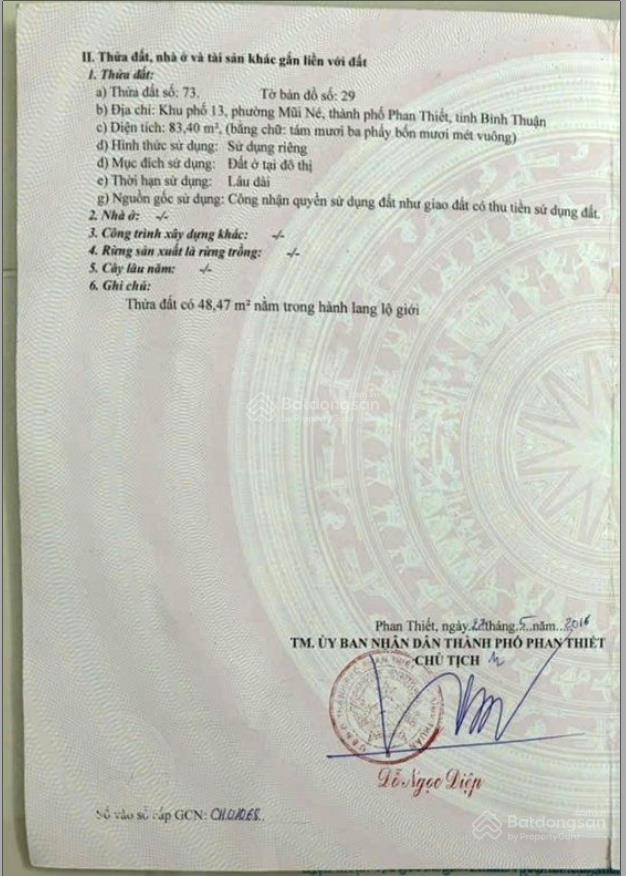 II. Thửa đất, nhà ở và tài sản khác gắn liền với đất
1. Thửa đất:
a) Thửa đất số: 73. Tờ bản đồ số: 29
b) Địa chỉ: Khu phố 13, phường Mũi Né, thành phố Phan Thiết, tỉnh Bình Thuận
c) Diện tích: 83,40 m², (bằng chữ: tám mươi ba phẩy bốn mươi mét vuông)
d) Hình thức sử dụng: Sử dụng riêng
đ) Mục đích sử dụng: Đất ở tại đô thị
e) Thời hạn sử dụng: Lâu dài
g) Nguồn gốc sử dụng: Công nhận quyền sử dụng đất như giao đất có thu tiền sử dụng đất.
2. Nhà ở: -/-
3. Công trình xây dựng khác: -/-
4. Rừng sản xuất là rừng trồng: -/-
5. Cây lâu năm: -/-
6. Ghi chú:
Thửa đất có 48,47 m² nằm trong hành lang lộ giới
Batdongsan
by PropertyGuru
Phan Thiết, ngày 27 tháng 5 năm 2016
TM. ỦY BAN NHÂN DÂN THÀNH PHỐ PHAN THIẾT
CHỦ TỊCH
Đỗ Ngọc Điệp
Số vào sổ cấp GCN: CH01068
Batdongsan
by PropertyGuru